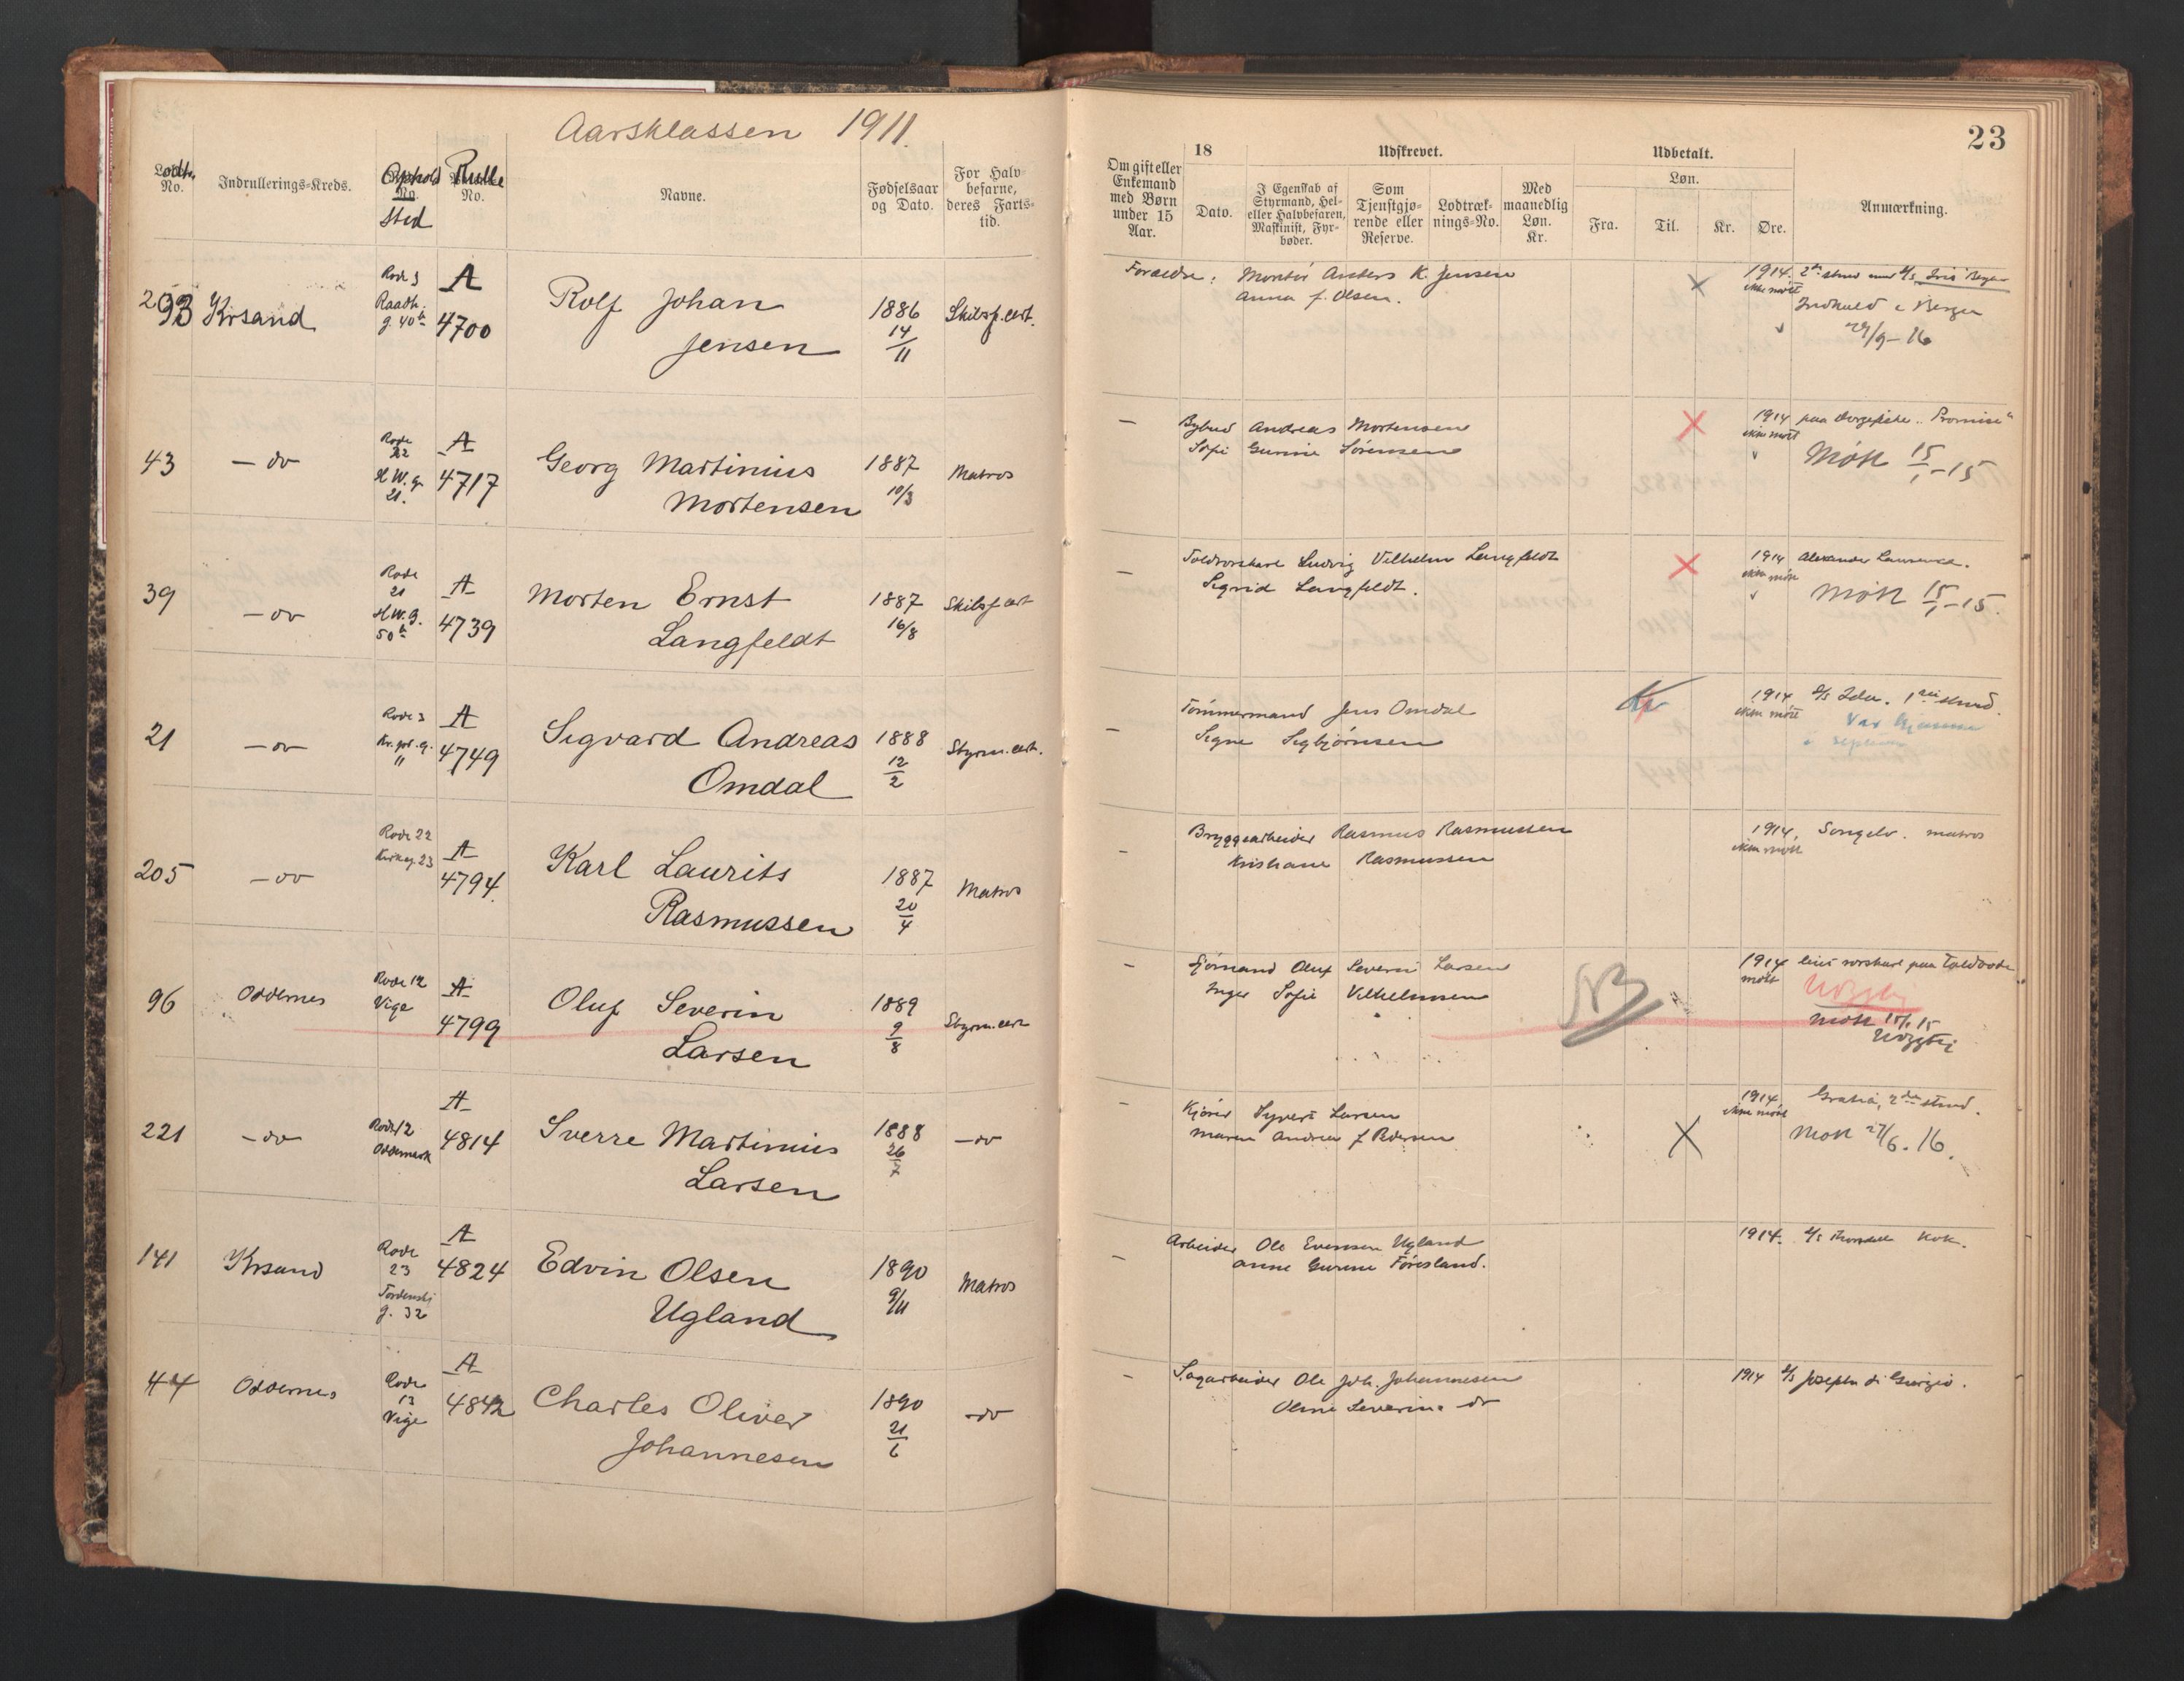 Aarsklassen 1911.
23
Lodtr. No.
Indrullerings-Kreds.
Ophold Sted
Rulle No.
Navne.
Fødselsaar og Dato.
For Halvbefarne, deres Fartstid.
Om gift eller Enkemand med Børn under 15 Aar.
18
Dato.
Udskrevet.
I Egenskab af Styrmand, Hel- eller Halvbefaren, Maskinist, Fyrbøder.
Som Tjenstgjørende eller Reserve.
Lodtræknings-No.
Med maanedlig Løn. Kr.
Udbetalt.
Løn.
Fra.
Til.
Kr.
Øre.
Anmærkning.
Krsand
Rode 3
Raadh.
A
4700
Rolf Johan
Jensen
1886
14/11
Skibsf.cert.
Forældre: Montør Anders K. Jensen
Anna f. Olsen.
1914
ikke mødt
Bergen
29/9-16
43
- do
Rode 22
H.W.g. 21.
A
4717
Georg Martinius
Mortensen
1887
10/3
Matros
-
Bybud Andreas Mortensen
Sofie Gurine Sørensen
1914
ikke mødt
paa "Promise"
Møtt 15/1-15
39
- do
Rode 21
H.W.g. 50
A
4739
Morten Ernst
Langfeldt
1887
16/8
Skibsf.cert
-
Ludvig Vilhelm Langfeldt
Sigrid Langfeldt.
1914
ikke møtt
Alexander Lawrence.
Møtt 15/1-15.
21
- do
Rode 3
A
4749
Sigvard Andreas
Omdal
1888
12/2
Styrm.cert.
-
Tømmermand Jens Omdal
Signe Sigbjørnsen
1914
ikke møtt
Var hjemme
205
- do
Rode 22
Kirkeg. 23
A
4794.
Karl Laurits
Rasmussen
1887
20/4
Matros
-
Bryggearbeider Rasmus Rasmussen
Kristiane Rasmussen
1914.
ikke møtt
Songelv. matros
96
Oddernes
Rode 12
Vige
A
4799
Oluf Severin
Larsen
1889
9/8
Styrm.cert
-
Oluf Severin Larsen
Inger Sofie Vilhelmsen
NB
1914
møtt
paa Toldbode
Møtt 15/1 15
221
- do
Rode 12
A
4814
Sverre Martinius
Larsen
1888
26/7
- do
-
Kjører Syvert Larsen
Maren Andrea f Pedersen
1914
ikke møtt
Gratia, 2den stmd.
Møtt 27/6.16.
141
Krsand
Rode 23
Tordenskj g. 32
A
4824
Edvin Olsen
Ugland
1890
9/11
Matros
-
Arbeider Ole Evensen Ugland
Anne Gurine Føresland.
1914.
Kok.
44
Oddernes
Rode 13
Vige
A
4842
Charles Oliver
Johannesen
1890
21/6
- do
-
Sagarbeider Ole Joh. Johannesen
Oline Severine do
1914
Joseph di Giorgio.